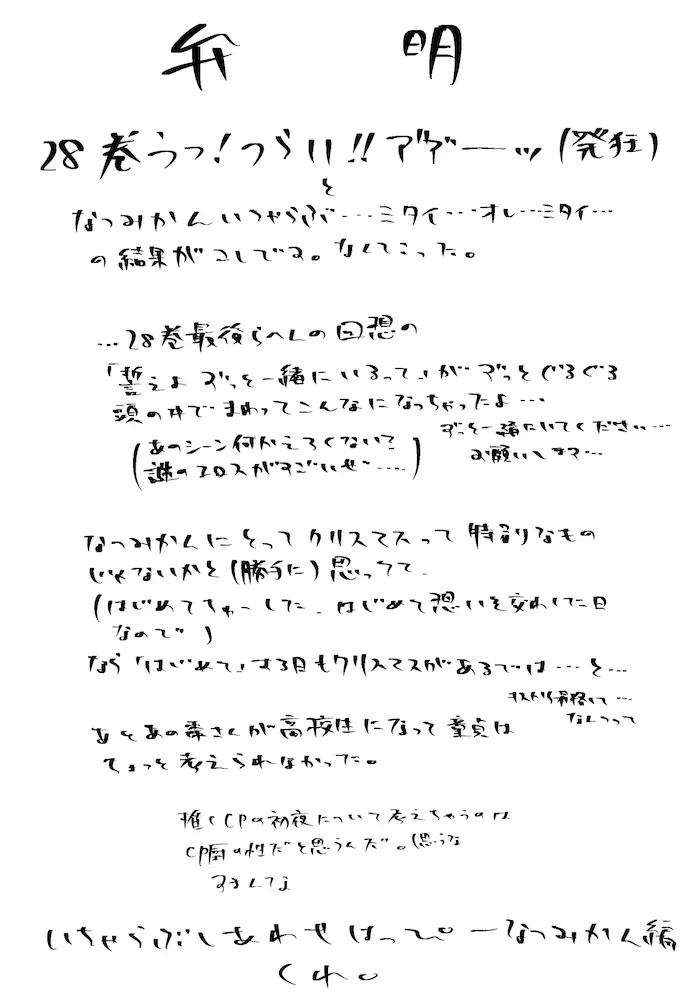 弁明
28巻うっ!つらい!!アアーーッ(発狂)
と
なつみかんいちゃらぶ…ミタイ…オレ…ミタイ…
の結果がコレです。なんてこった。
…28巻最後らへんの回想の
「誓えよ ずっと一緒にいるって」がずっとぐるぐる
頭の中でまわってこんなになっちゃったよ…
ずっと一緒にいてください…
お願いします…
(あのシーン何かえろくない?
謎のエロスがすごいぜ…)
なつみかんにとってクリスマスって特別なもの
じゃないかと(勝手に)思ってて、
(はじめてちゅーした、はじめて想いを交わした日
なので)
なら「はじめて」する日もクリスマスがあるでは…と…
昇格して…
なんつって
あとあの棗さんが高校生になって童貞は
ちょっと考えられなかった。
推しCPの初夜について考えちゃうのは
CP厨の性だと思うんだ。(思うな
すみません
いちゃらぶしあわせはっぴーなつみかん編
くれ。